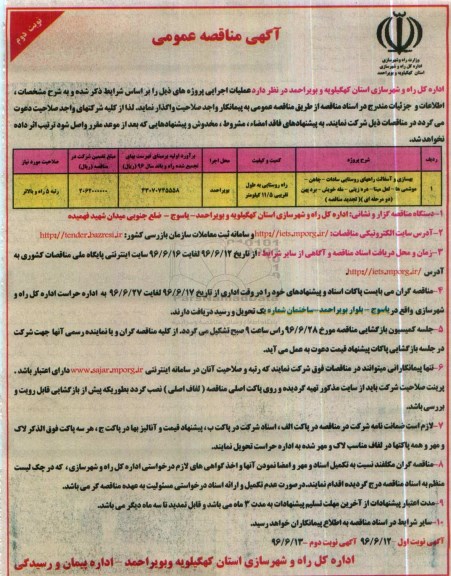 نوبت دوم
آگهی مناقصه عمومی
وزارت راه و شهرسازی
اداره کل راه و شهرسازی
استان کهگیلویه و بویراحمد
اداره کل راه و شهرسازی استان کهگیلویه و بویراحمد در نظر دارد عملیات اجرایی پروژه های ذیل را بر اساس شرایط ذکر شده و به شرح مشخصات ،
اطلاعات و جزئیات مندرج در اسناد مناقصه از طریق مناقصه عمومی به پیمانکار واجد صلاحیت واگذار نماید. لذا از کلیه شرکتهای واجد صلاحیت دعوت
می گردد در مناقصات ذیل شرکت نمایند. به پیشنهادهای فاقد امضاء ، مشروط ، مخدوش و پیشنهادهایی که بعد از موعد مقرر واصل شود ترتیب اثر داده
نخواهد شد.
ردیف شرح پروژه کمیت و کیفیت محل اجرا برآورد اولیه برمبنای فهرست بهای تجمیع شده راه و باند سال ۹۶ (ریال) مبلغ تضمین شرکت در مناقصه (ریال) صلاحیت مورد نیاز
۱ بهسازی و آسفالت راههای روستایی سادات - چاهن - موشمی ها - لعل مینا - دره زینی - مله خویش - برد پهن (دو مرحله ای) (تجدید مناقصه) راه روستایی به طول تقریبی ۱۱/۵ کیلومتر بویراحمد ۴۳۰۷۰۷۳۵۵۵۸ ۲۰۶۲۰۰۰۰۰۰ رتبه ۵ راه و بالاتر
۱-دستگاه مناقصه گزار و نشانی: اداره کل راه و شهرسازی استان کهگیلویه و بویراحمد- یاسوج - ضلع جنوبی میدان شهید فهمیده
۲-آدرس سایت الکترونیکی مناقصات: http://iets.mporg.ir و سامانه ثبت معاملات سازمان بازرسی کشور: http://tender.bazresi.ir
۳-زمان و محل دریافت اسناد مناقصه و آگاهی از سایر شرایط : از تاریخ ۹۶/۶/۱۲ لغایت ۹۶/۶/۱۶ سایت اینترنتی پایگاه ملی مناقصات کشوری به
آدرس http://iets.mporg.ir.
۴-مناقصه گران می بایست پاکات اسناد و پیشنهادهای خود را در وقت اداری از تاریخ ۹۶/۶/۱۷ لغایت ۹۶/۶/۲۷ به اداره حراست اداره کل راه و
شهرسازی واقع در یاسوج - بلوار بویراحمد - ساختمان شماره یک تحویل و رسید دریافت دارند.
۵-جلسه کمیسیون بازگشایی مناقصه مورخ ۹۶/۶/۲۸ راس ساعت ۹ صبح تشکیل می گردد. از کلیه مناقصه گران و یا نماینده رسمی آنها جهت شرکت
در جلسه بازگشایی پاکات پیشنهاد قیمت دعوت به عمل می آید.
۶-تنها پیمانکارانی میتوانند در مناقصات فوق شرکت نمایند که رتبه و صلاحیت آنان در سامانه اینترنتی www.sajar.mporg.ir دارای اعتبار باشد .
پرینت صلاحیت شرکت باید از سایت مذکور تهیه گردیده و روی پاکت اصلی مناقصه ( لفاف اصلی ) نصب گردد بطوریکه پیش از بازگشایی قابل رویت و
بررسی باشد.
۷-لازم است ضمانت نامه شرکت در مناقصه در پاکت الف ، اسناد شرکت در پاکت ب ، پیشنهاد قیمت و آنالیز بها در پاکت ج ، هر سه پاکت فوق الذکر لاک
و مهر و همه پاکتها در لفاف مناسب لاک و مهر شده به اداره حراست تحویل نمایند.
۸-مناقصه گران مکلفند نسبت به تکمیل اسناد و مهر و امضا نمودن آنها و اخذ گواهی های لازم درخواستی اداره کل راه و شهرسازی ، که در چک لیست
منظم به اسناد مناقصه درج گردیده اقدام نمایند. در صورت عدم تکمیل و ارائه اسناد درخواستی مسئولیت به عهده مناقصه گر می باشد.
۹-مدت اعتبار پیشنهادات از آخرین مهلت تسلیم پیشنهادات به مدت ۳ ماه می باشد و قابل تمدید تا سه ماه دیگر می باشد.
۱۰-سایر شرایط در اسناد مناقصه به اطلاع پیمانکاران خواهد رسید.
آگهی نوبت اول -۹۶/۶/۱۲ آگهی نوبت دوم -۹۶/۶/۱۳
اداره کل راه و شهرسازی استان کهگیلویه و بویراحمد - اداره پیمان و رسیدگی